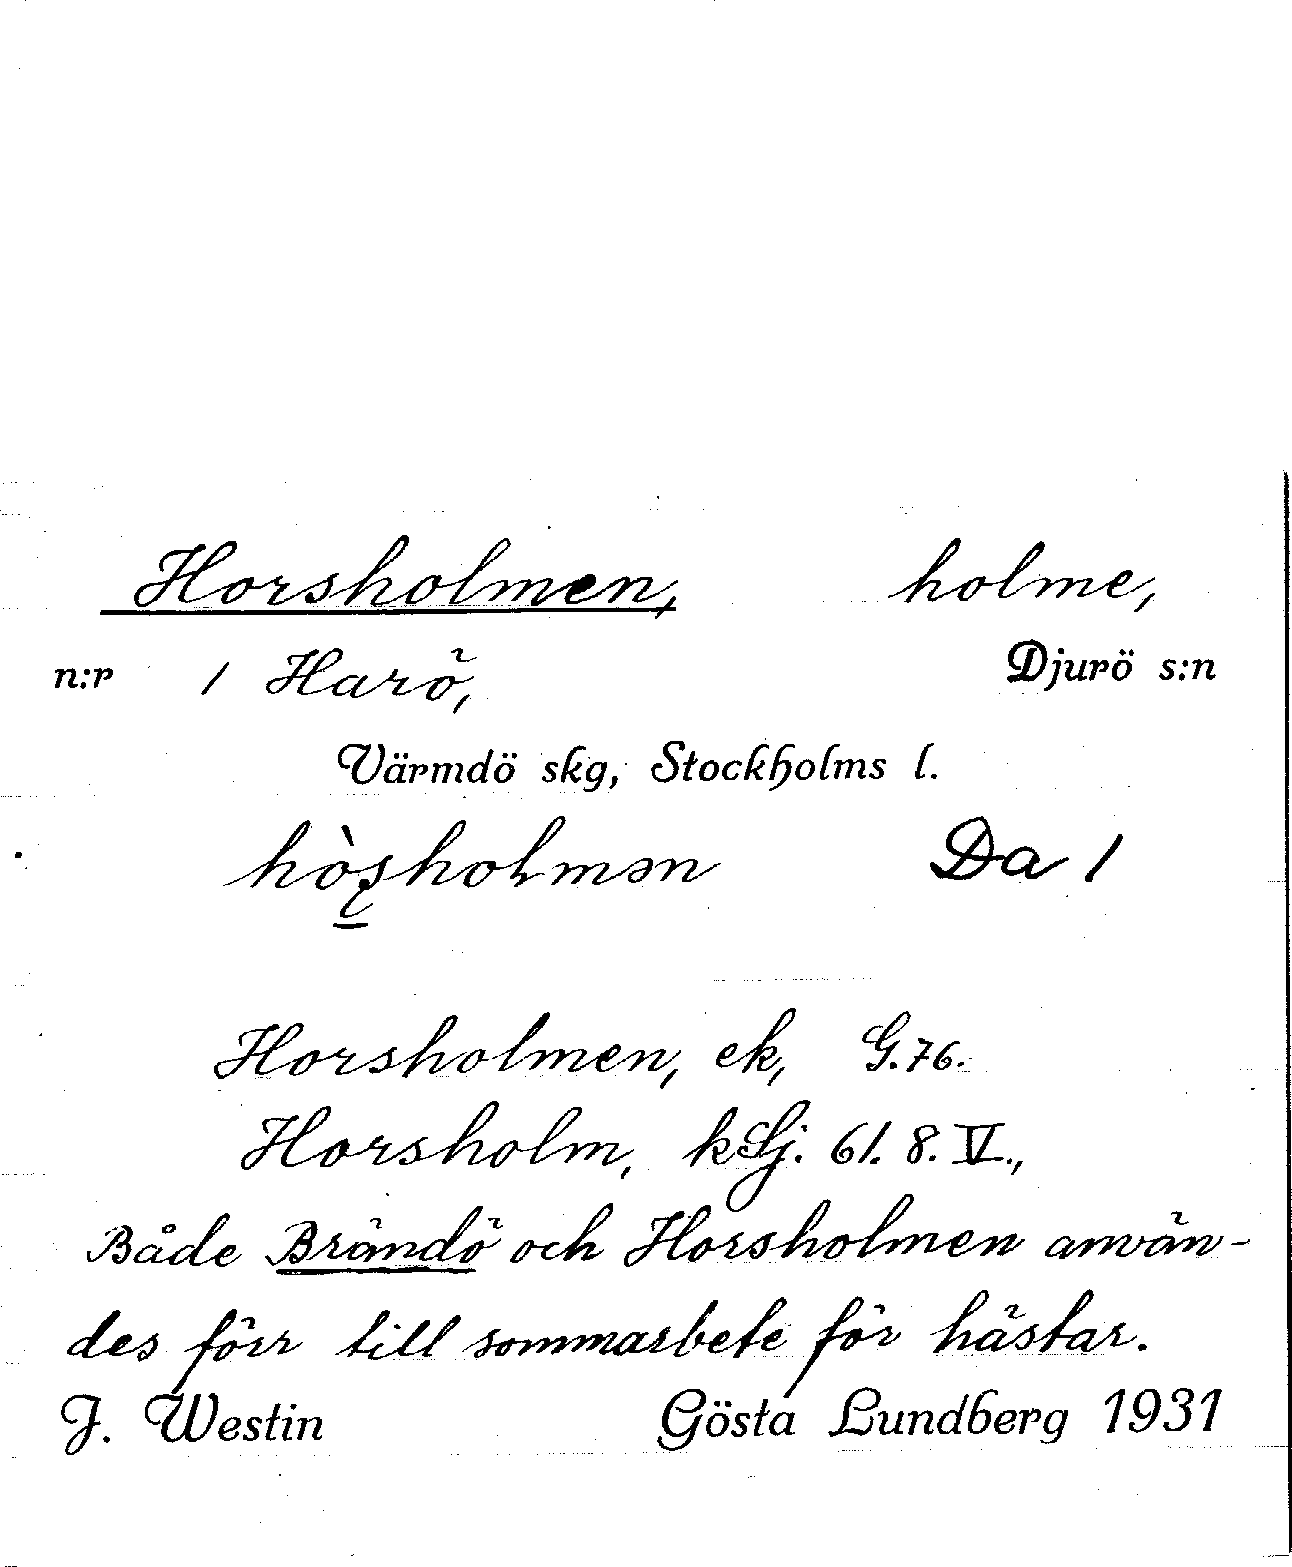 Horsholmen, holme,
n:r 1 Harö, Djurö s:n
Värmdö skg, Stockholms l.
Da 1
Horsholmen, ek, G.76.
Horsholm, kLj. 61. 8. V.,
Både Brändö och Horsholmen använ-
des förr till sommarbete för hästar.
J. Westin Gösta Lundberg 1931